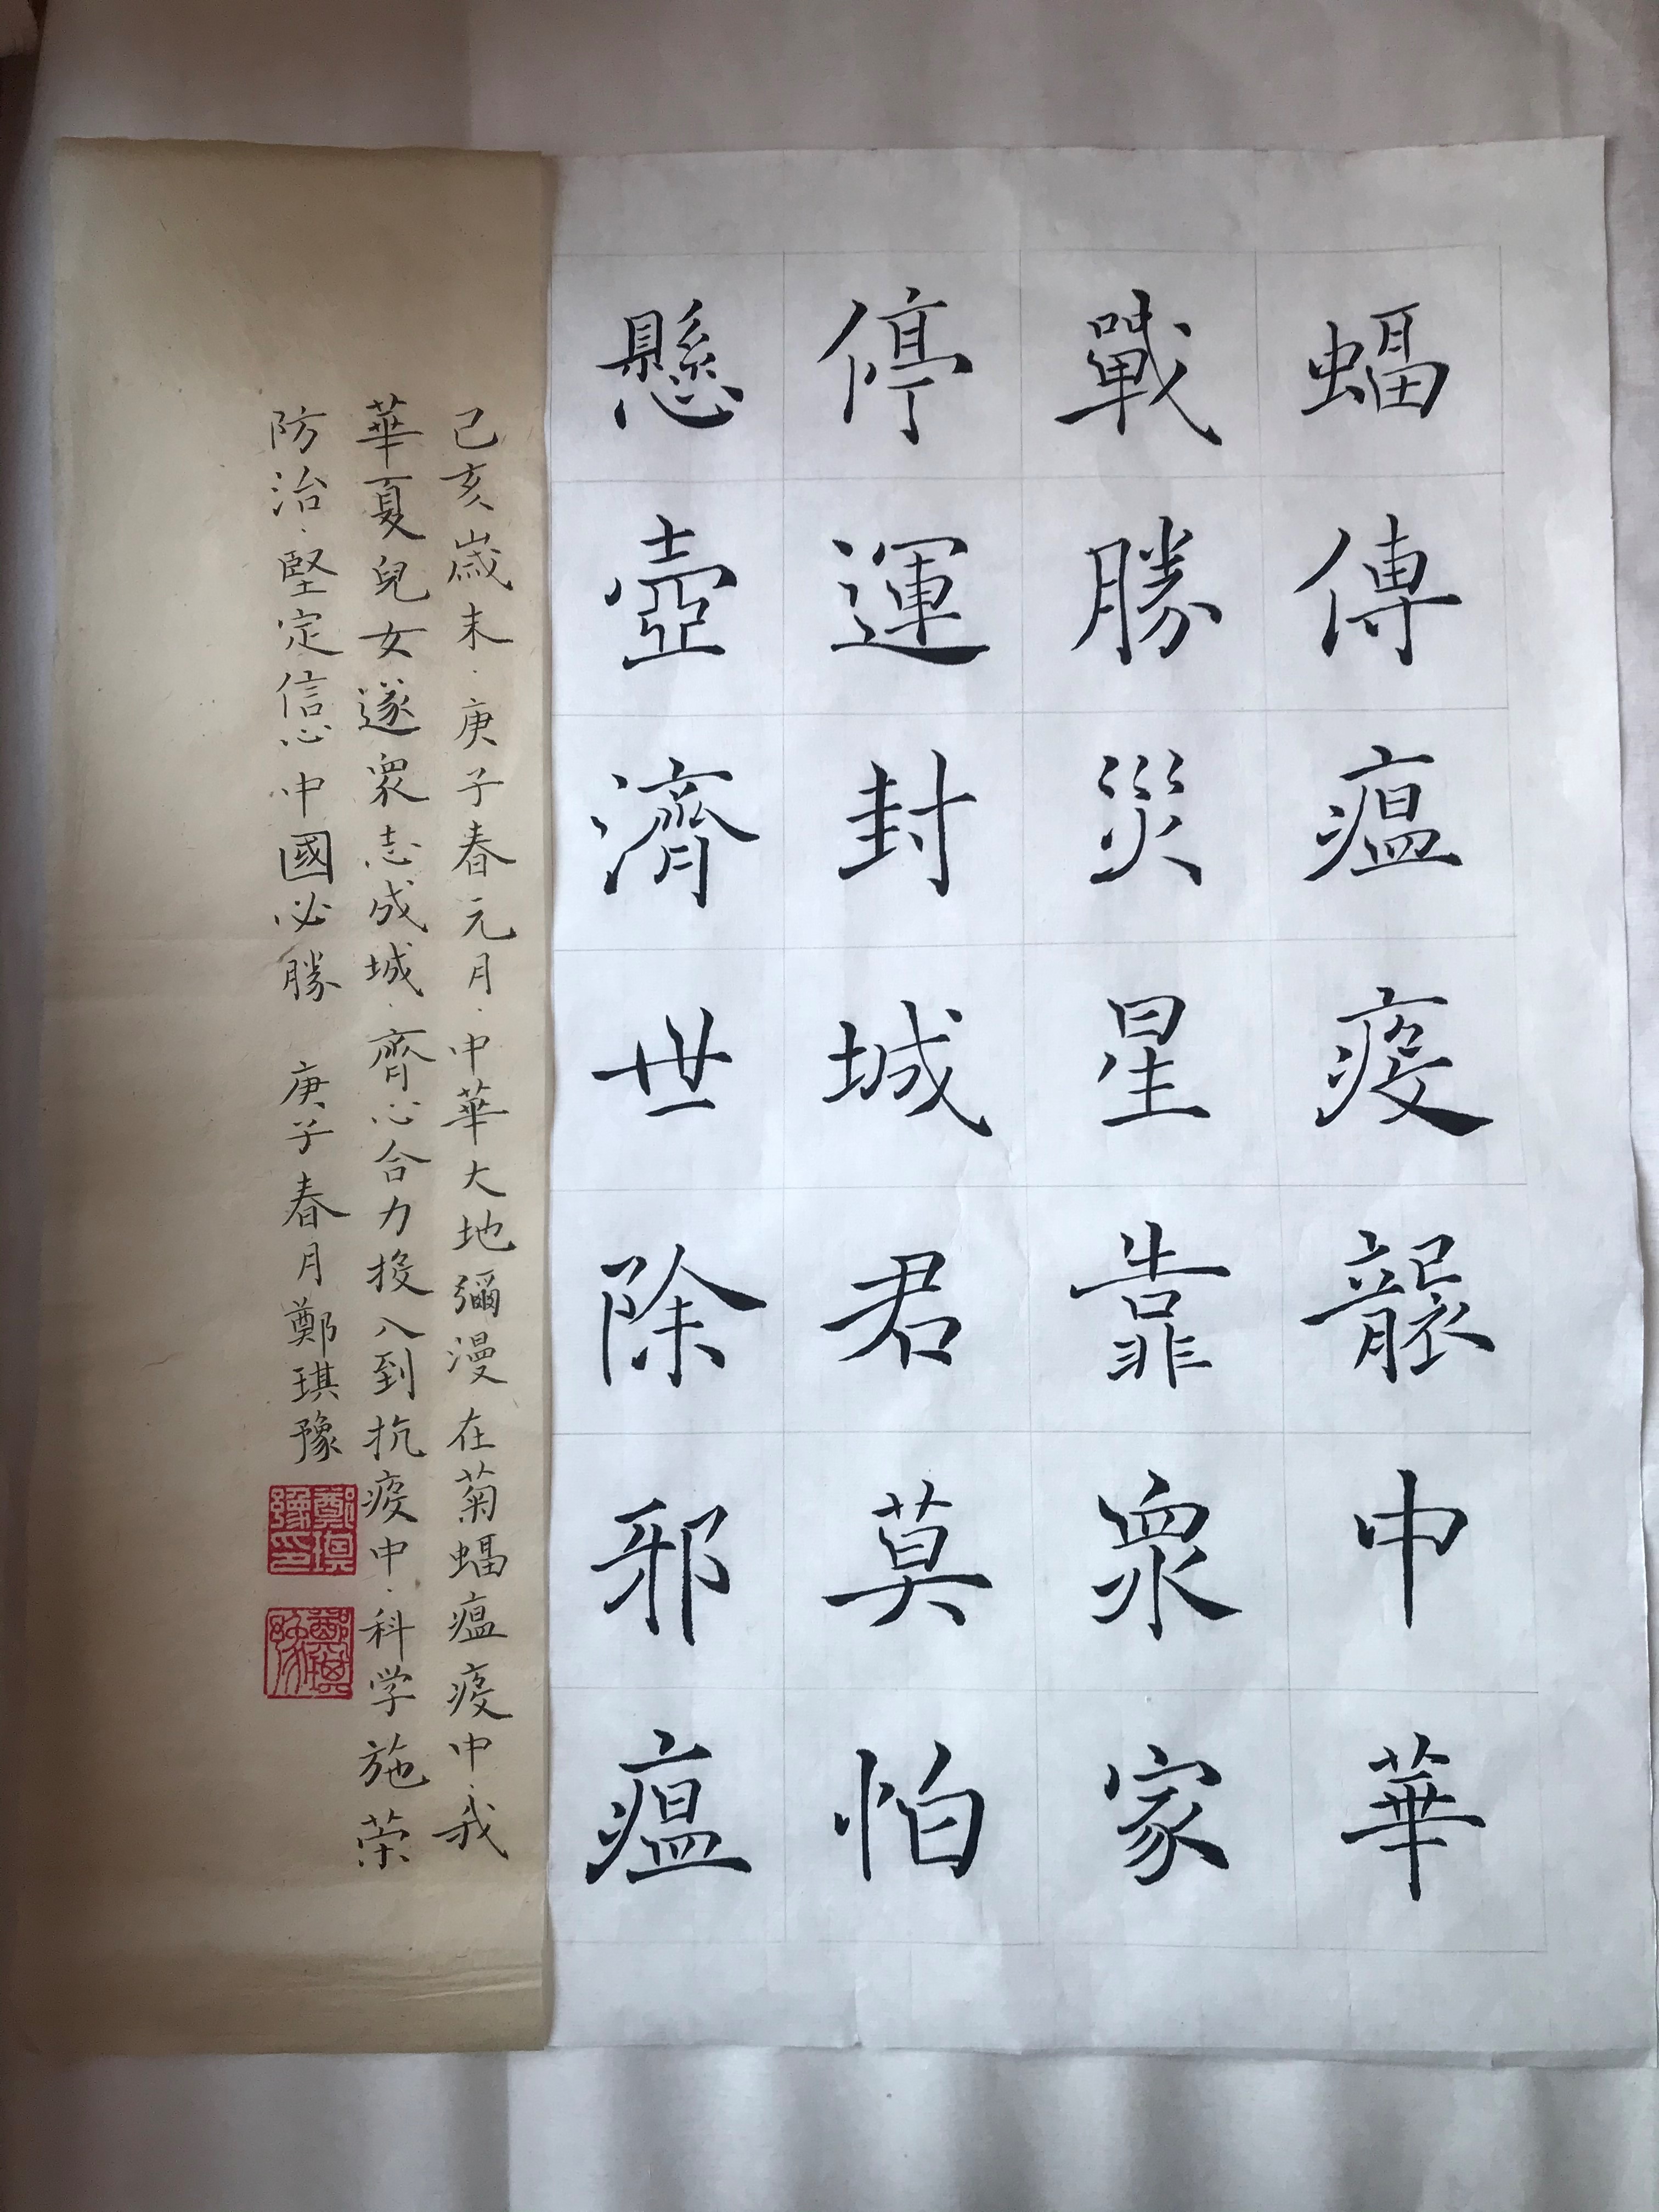 蝠傳瘟疫襲中華
戰勝災星靠眾家
停運封城君莫怕
懸壺濟世除邪瘟
己亥歲末·庚子春元月·中華大地彌漫在菊蝠瘟疫中·我
華夏兒女遂眾志成城·齊心合力投入到抗疫中·科学施荣
防治·堅定信心中國必勝 庚子春月鄭琪豫
鄭琪豫印
鄭琪豫